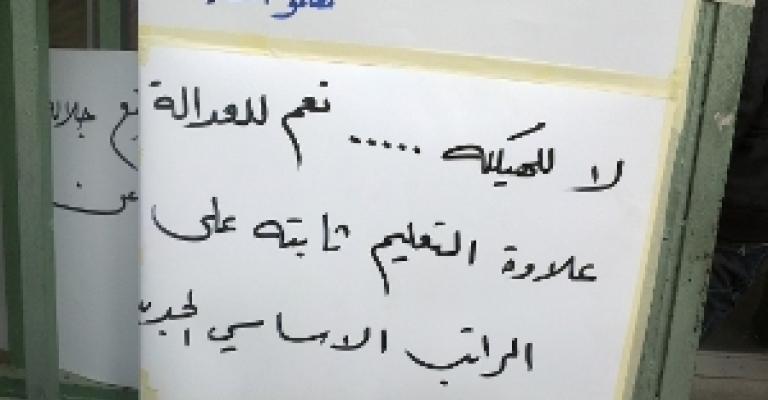 لا للهيكله ..... نعم للعدالة
علاوة التعليم ثابته على
الراتب الاساسي الجديد
جلالة
عن